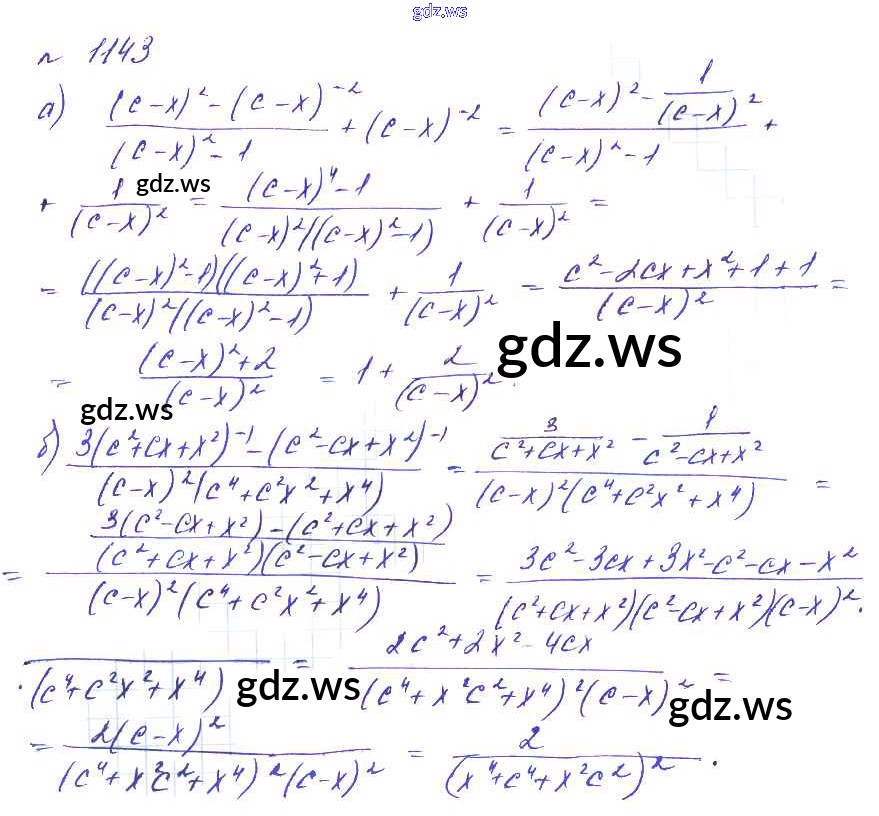 gdz.ws
№ 1143
а) ((c-x)² - (c-x)⁻²)/((c-x)² - 1) + (c-x)⁻² = ((c-x)² - 1/(c-x)²)/((c-x)² - 1) +
+ 1/(c-x)² = ((c-x)⁴ - 1)/((c-x)²((c-x)² - 1)) + 1/(c-x)² =
gdz.ws
= (((c-x)² - 1)((c-x)² + 1))/((c-x)²((c-x)² - 1)) + 1/(c-x)² = (c² - 2cx + x² + 1 + 1)/(c-x)² =
= ((c-x)² + 2)/(c-x)² = 1 + 2/(c-x)².
gdz.ws
gdz.ws
б) (3(c²+cx+x²)⁻¹ - (c²-cx+x²)⁻¹)/((c-x)²(c⁴+c²x²+x⁴)) = (3/(c²+cx+x²) - 1/(c²-cx+x²))/((c-x)²(c⁴+c²x²+x⁴)) =
= ((3(c²-cx+x²) - (c²+cx+x²))/((c²+cx+x²)(c²-cx+x²)))/((c-x)²(c⁴+c²x²+x⁴)) = (3c²-3cx+3x²-c²-cx-x²)/((c²+cx+x²)(c²-cx+x²)(c-x)²·
·(c⁴+c²x²+x⁴)) = (2c²+2x²-4cx)/((c⁴+x²c²+x⁴)²(c-x)²) =
gdz.ws
gdz.ws
= 2(c-x)²/((c⁴+x²c²+x⁴)²(c-x)²) = 2/(x⁴+c⁴+x²c²)².